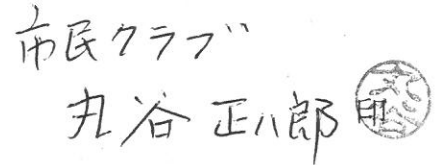 市民クラブ
丸谷 正八郎 印